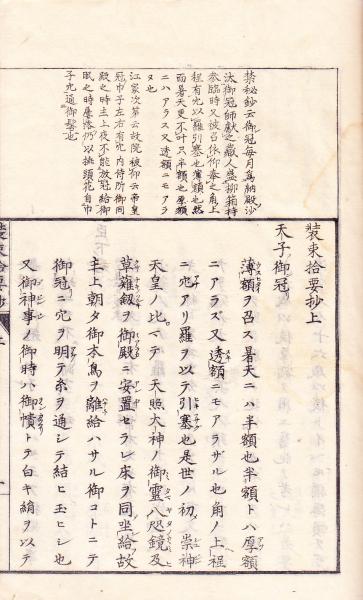 禁秘鈔云御冠毎月爲納殿沙
汰御冠師獻之藏人盛柳筥持
参臨時又被召依仰奉之角上
程有穴以羅引塞也薄額也然
而暑天更不叶只半額也厚額
ニハアラス又透額ニモアラ
ヌ也
江家次第云故院被仰云帝皇
冠巾子左右有穴内侍所御同
殿之時主上夜不能放冠給御
眠之時屡落仍以挑頭花自巾
子穴通御髻也
裝束拾要抄上
天子御冠
薄額ヲ召ス暑天ニハ半額也半額トハ厚額
ニアラズ又透額ニモアラザル也角ノ上程
ニ穴アリ羅ヲ以テ引塞也是世ノ初崇神
天皇ノ比マデ天照大神ノ御靈八咫鏡及
草薙劔ヲ御殿ニ安置セラレ床ヲ同坐給故
主上朝夕御本鳥ヲ離給ハサル御コトニテ
御冠ニ穴ヲ明テ糸ヲ通シテ結ヒ玉ヒシ也
又御神事ノ御時ハ御幘トテ白キ絹ヲ以テ
裝束拾要抄上